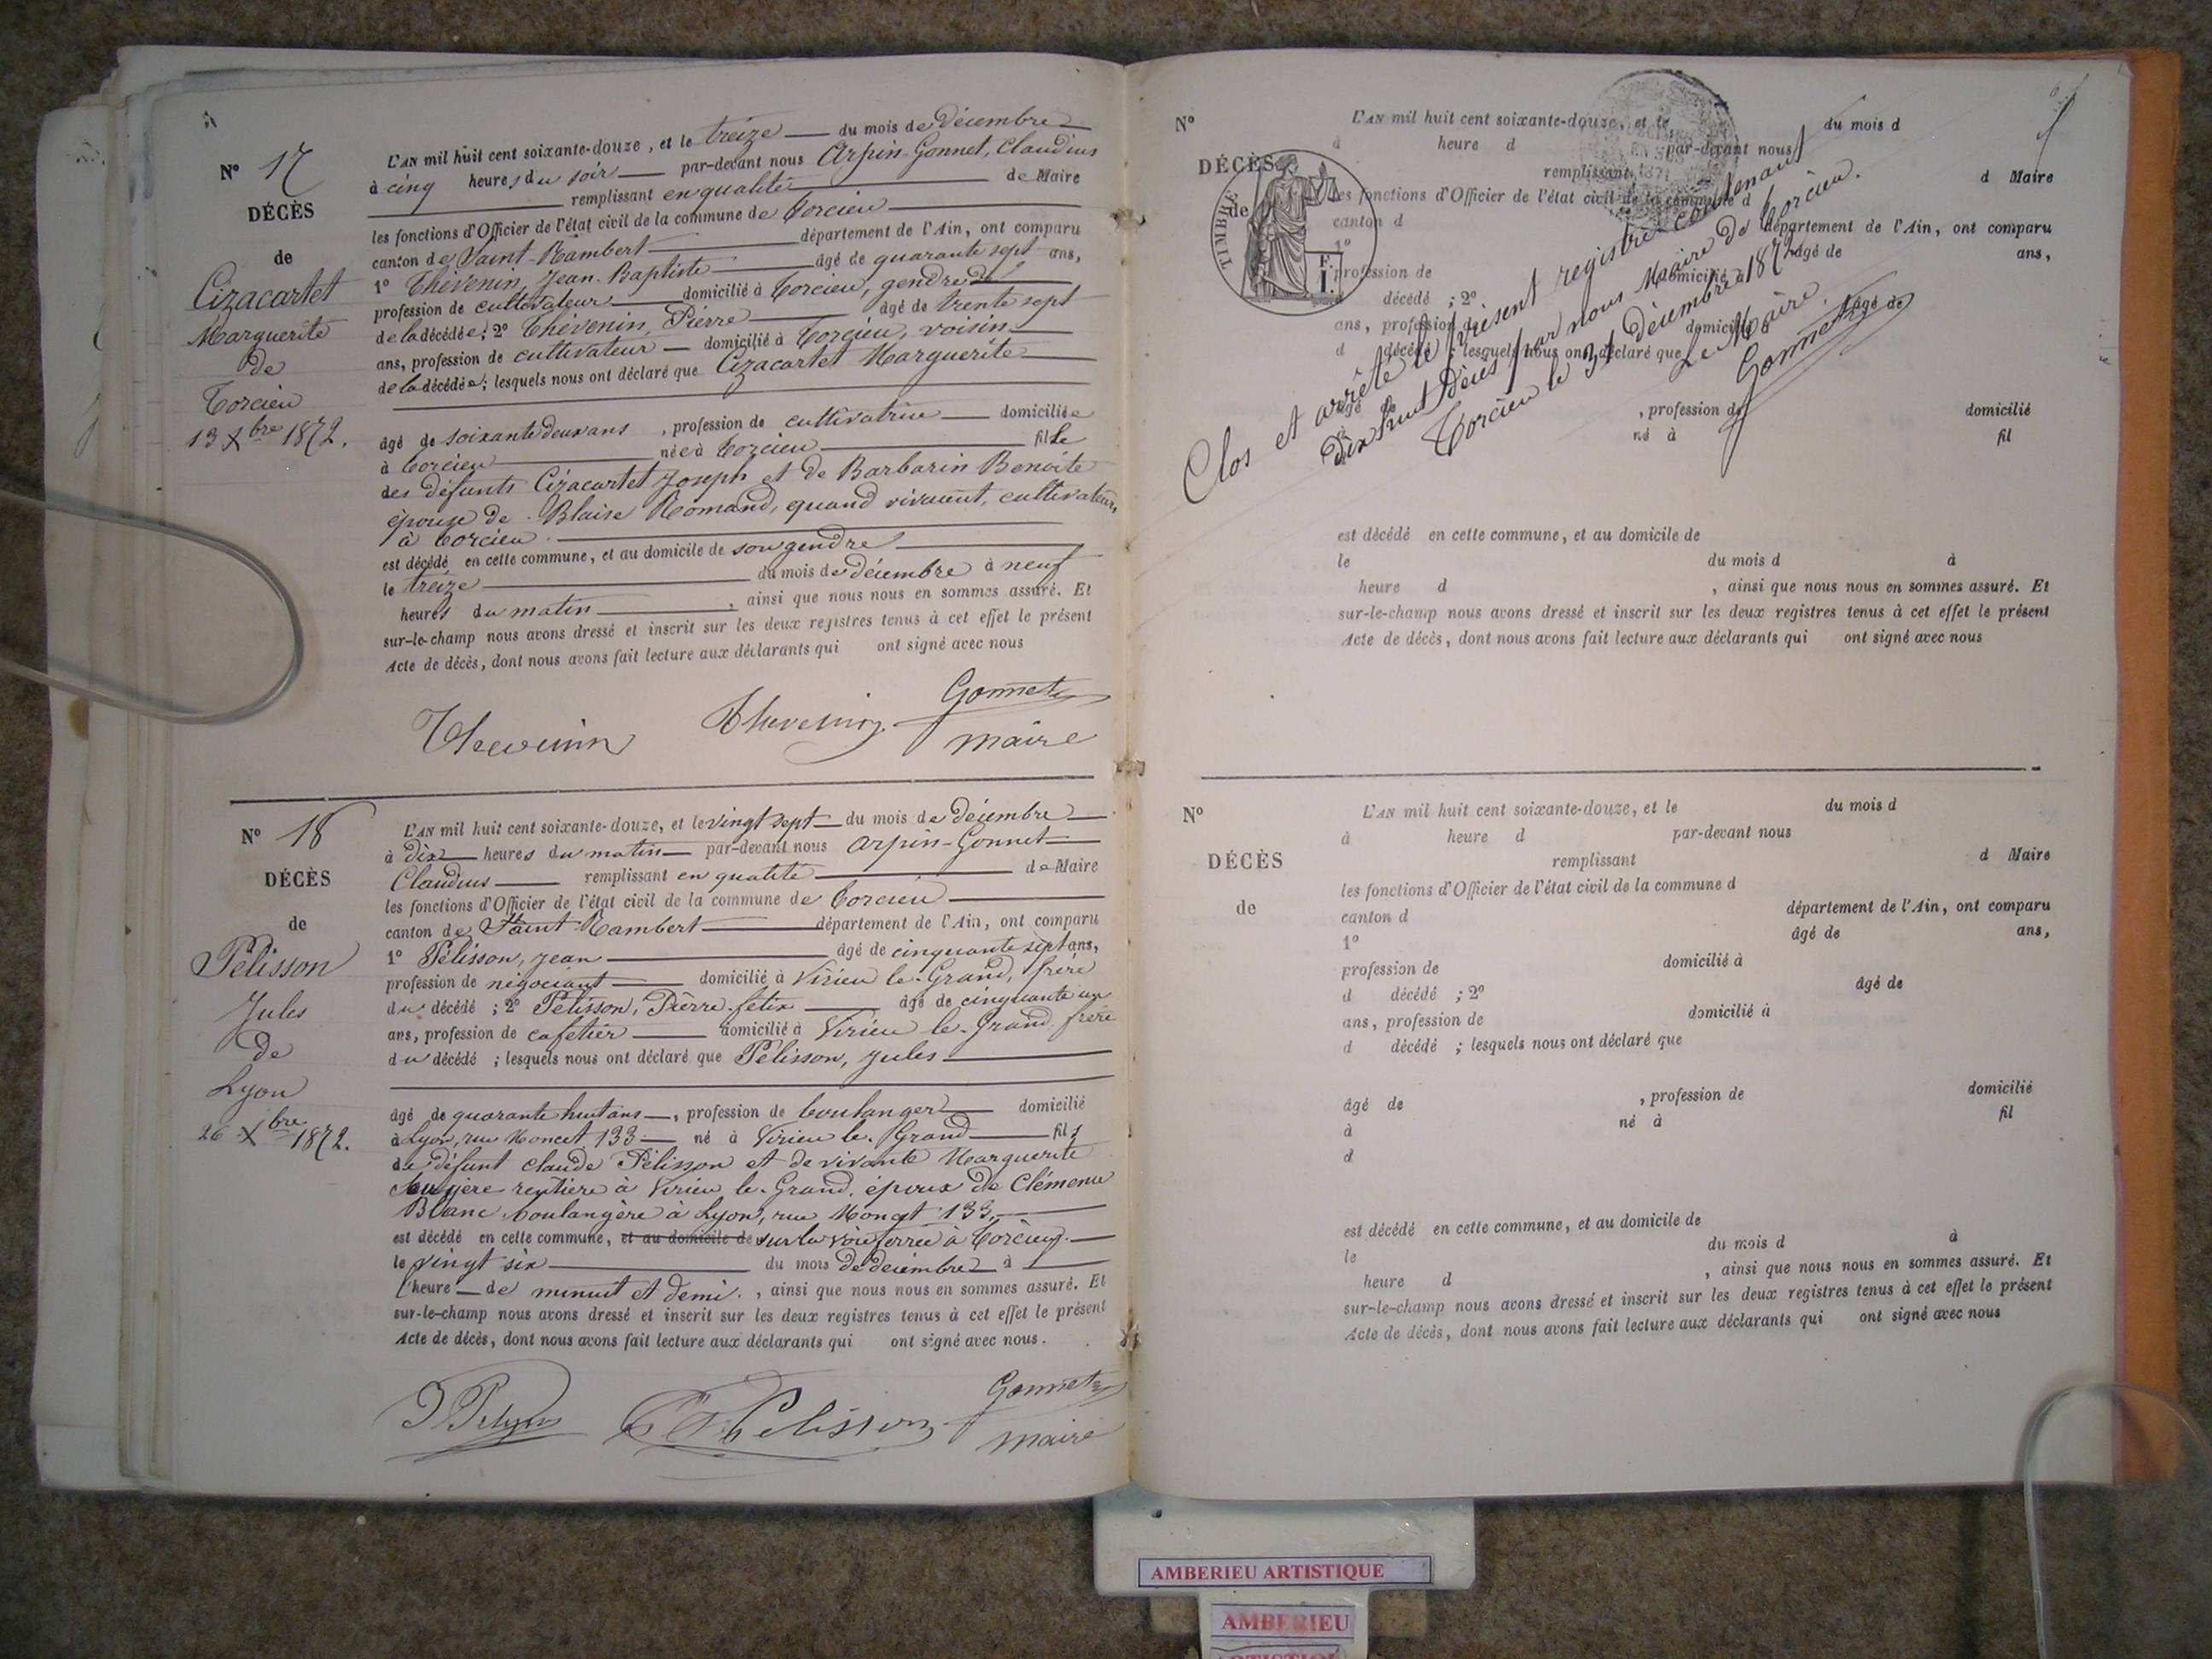 N° 17
DÉCÈS
de
Cizacartet
Marguerite
de
Torcieu
13 Xbre 1872.
L'AN mil huit cent soixante-douze, et le treize du mois de Décembre
à cinq heures du soir par-devant nous Arpin-Gonnet, Claudius
remplissant en qualité de Maire
les fonctions d'Officier de l'état civil de la commune de Torcieu
canton de Saint-Rambert département de l'Ain, ont comparu
1° Thévenin, Jean-Baptiste âgé de quarante sept ans,
profession de cultivateur domicilié à Torcieu, gendre de
de la décédée; 2° Thévenin, Pierre âgé de trente sept
ans, profession de cultivateur domicilié à Torcieu, voisin
de la décédée; lesquels nous ont déclaré que Cizacartet Marguerite
âgé de soixante deux ans, profession de cultivatrice domiciliée
à Torcieu née à Torcieu fille
des défunts Cizacartet Joseph et de Barbarin Benoite
épouse de Blaise Romand, quand vivaient, cultivateurs
à Torcieu.
est décédé en cette commune, et au domicile de son gendre
le treize du mois de décembre à neuf
heures du matin, ainsi que nous nous en sommes assuré. Et
sur-le-champ nous avons dressé et inscrit sur les deux registres tenus à cet effet le présent
Acte de décès, dont nous avons fait lecture aux déclarants qui ont signé avec nous
Thevenin Thevenin Gonnet
maire
N° 18
DÉCÈS
de
Pélisson
Jules
de
Lyon
26 Xbre 1872.
L'AN mil huit cent soixante-douze, et le vingt sept du mois de Décembre
à dix heures du matin par-devant nous Arpin-Gonnet
Claudius remplissant en qualité de Maire
les fonctions d'Officier de l'état civil de la commune de Torcieu
canton de Saint-Rambert département de l'Ain, ont comparu
1° Pélisson, Jean âgé de cinquante sept ans,
profession de négociant domicilié à Virieu le-Grand, frère
du décédé; 2° Pélisson, Pierre felix âgé de cinquante un
ans, profession de cafetier domicilié à Virieu le-Grand frère
du décédé; lesquels nous ont déclaré que Pélisson, Jules
âgé de quarante huit ans, profession de boulanger domicilié
à Lyon, rue Moncet 133 né à Virieu le-Grand fils
de défunt Claude Pélisson et de vivante Marguerite
rentière à Virieu le-Grand, époux de Clémence
Blanc boulangère à Lyon, rue Moncet 133,
est décédé en cette commune, et au domicile de sur la voie ferrée à Torcieu.
le vingt six du mois de decembre à
l'heure de minuit et demi., ainsi que nous nous en sommes assuré. Et
sur-le-champ nous avons dressé et inscrit sur les deux registres tenus à cet effet le présent
Acte de décès, dont nous avons fait lecture aux déclarants qui ont signé avec nous.
Pelisson Gonnet
maire
N°
DÉCÈS
de
TIMBRE
L'AN mil huit cent soixante-douze, et le du mois d
à heure d par-devant nous
remplissant d Maire
les fonctions d'Officier de l'état civil de la commune d
canton d département de l'Ain, ont comparu
1° âgé de ans,
profession de domicilié à
d décédé ; 2° âgé de
ans, profession de domicilié à
d décédé ; lesquels nous ont déclaré que
âgé de , profession de domicilié
à né à fil
Clos et arrêté le présent registre contenant
dix huit Décès par nous Maire de Torcieu.
Torcieu le 31 décembre 1872
Le Maire.
Gonnet
est décédé en cette commune, et au domicile de
le du mois d à
heure d , ainsi que nous nous en sommes assuré. Et
sur-le-champ nous avons dressé et inscrit sur les deux registres tenus à cet effet le présent
Acte de décès, dont nous avons fait lecture aux déclarants qui ont signé avec nous
N°
DÉCÈS
de
L'AN mil huit cent soixante-douze, et le du mois d
à heure d par-devant nous
remplissant d Maire
les fonctions d'Officier de l'état civil de la commune d
canton d département de l'Ain, ont comparu
1° âgé de ans,
profession de domicilié à
d décédé ; 2° âgé de
ans, profession de domicilié à
d décédé ; lesquels nous ont déclaré que
âgé de , profession de domicilié
à né à fil
d
est décédé en cette commune, et au domicile de
le du mois d à
heure d , ainsi que nous nous en sommes assuré. Et
sur-le-champ nous avons dressé et inscrit sur les deux registres tenus à cet effet le présent
Acte de décès, dont nous avons fait lecture aux déclarants qui ont signé avec nous
AMBERIEU ARTISTIQUE
AMBERIEU
ARTISTIQUE